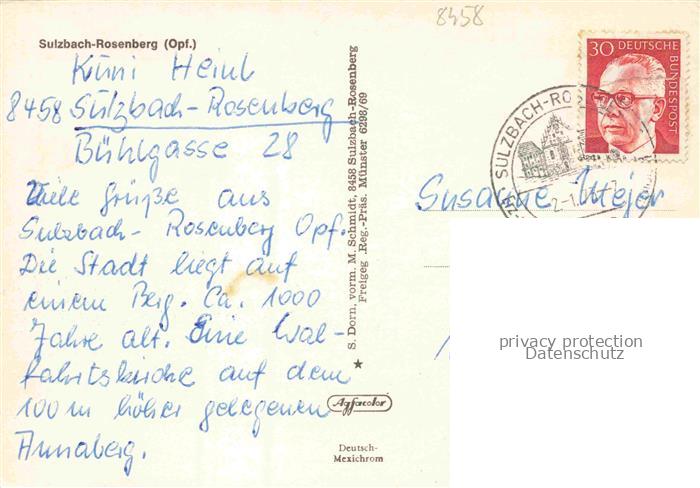 8458
Sulzbach-Rosenberg (Opf.)
Kuni Heinl
8458 Sulzbach-Rosenberg
Bühlgasse 28
Viele Grüße aus
Sulzbach-Rosenberg Opf.
Die Stadt liegt auf
einem Berg. Ca. 1000
Jahre alt. Eine Wal-
fahrtskirche auf dem
100 m höher gelegenen
Annaberg.
S. Dorn, vorm. M. Schmidt, 8458 Sulzbach-Rosenberg
Freigeg. Reg.-Präs. Münster 6298/69
Agfacolor
Deutsch-
Mexichrom
30 DEUTSCHE
BUNDESPOST
SULZBACH-RO
Susanne Mejer
privacy protection
Datenschutz